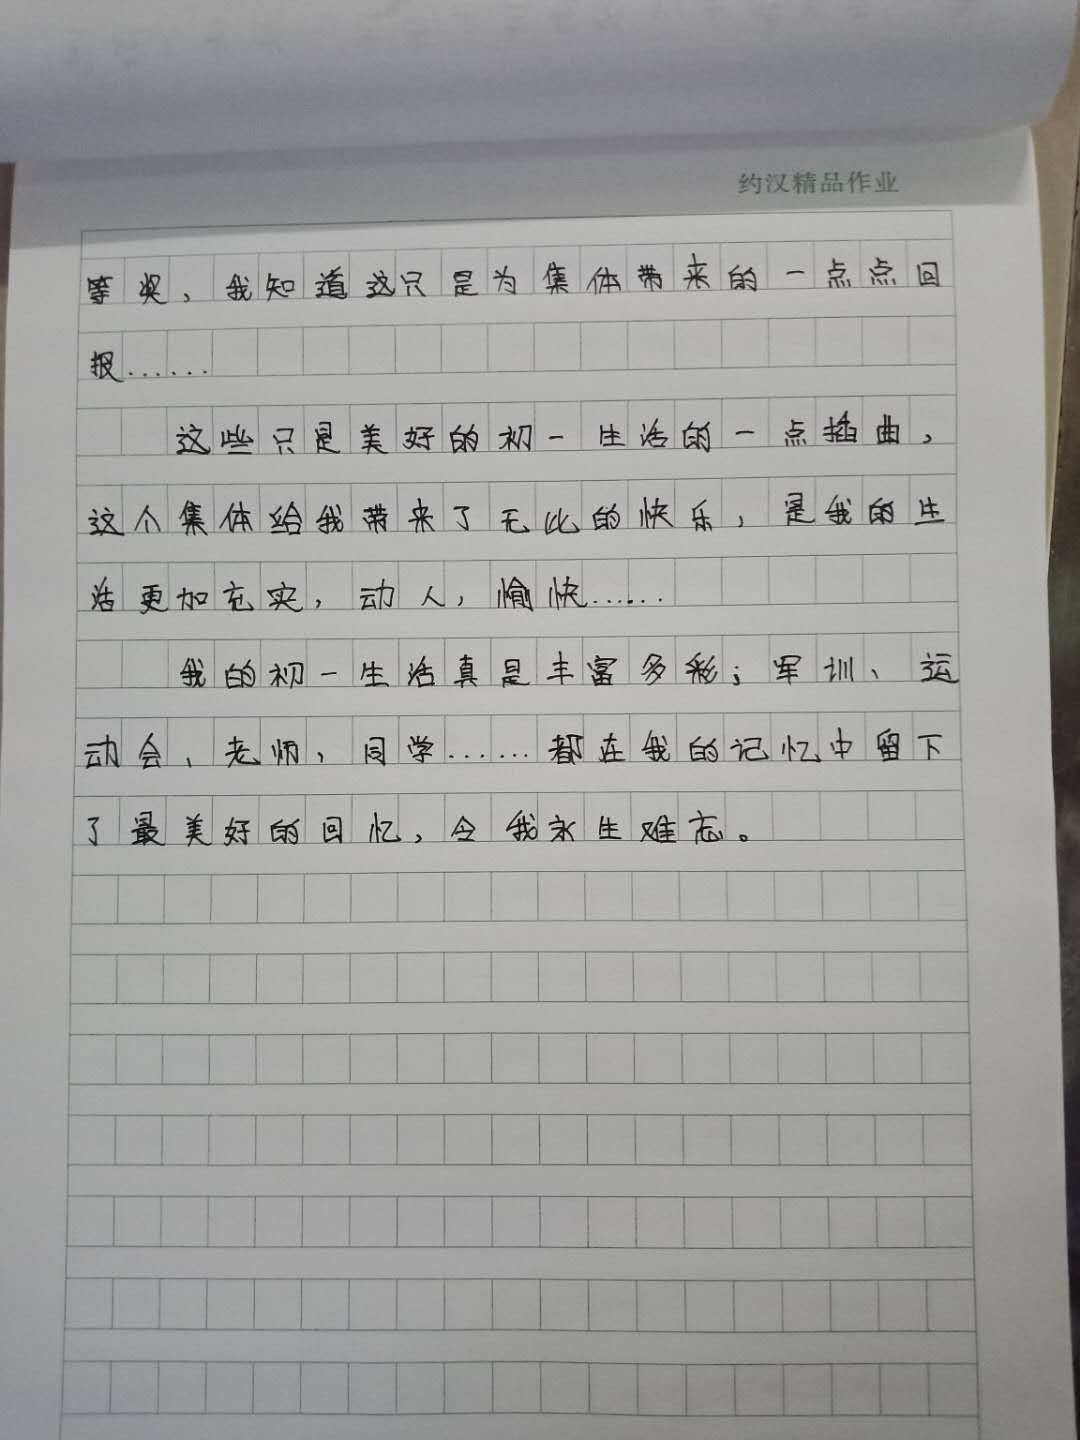 约汉精品作业
等奖，我知道这只是为集体带来的一点点回
报……
这些只是美好的初一生活的一点插曲，
这个集体给我带来了无比的快乐，是我的生
活更加充实，动人，愉快……
我的初一生活真是丰富多彩；军训、运
动会、老师，同学……都在我的记忆中留下
了最美好的回忆，令我永生难忘。